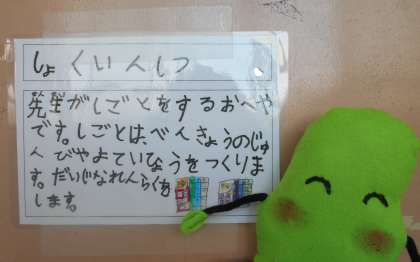 しょくいんしつ
先生がしごとをするおへや
です。しごとは、べんきょうのじゅ
んびやよていひょうをつくりま
す。だいじなれんらくを
します。